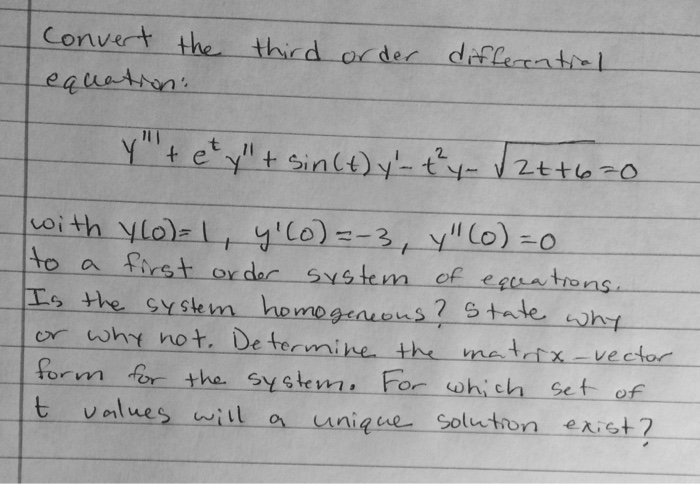 Convert the third order differential
equation:
y''' + e^t y'' + sin(t) y' - t²y - √2t+6 = 0
with y(0)=1, y'(0)=-3, y''(0)=0
to a first order system of equations.
Is the system homogeneous? State why
or why not. Determine the matrix-vector
form for the system. For which set of
t values will a unique solution exist?